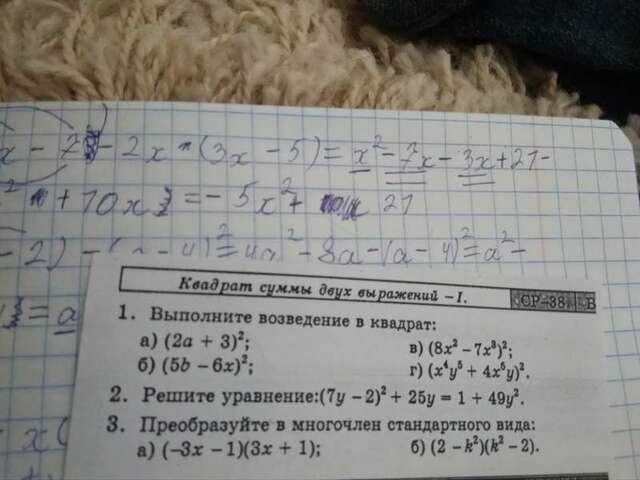 x - 7) - 2x · (3x - 5) = x² - 7x - 3x + 21 -
+ 10x = - 5x² + 21
- 2) - (a - 4)² = 4a² - 8a - (a - 4)² = a² -
= a
Квадрат суммы двух выражений – I. СР–38 В
1. Выполните возведение в квадрат:
а) (2a + 3)²; в) (8x² – 7x³)²;
б) (5b – 6x)²; г) (x⁴y⁵ + 4x⁶y)².
2. Решите уравнение:(7y – 2)² + 25y = 1 + 49y².
3. Преобразуйте в многочлен стандартного вида:
а) (–3x – 1)(3x + 1); б) (2 – k²)(k² – 2).